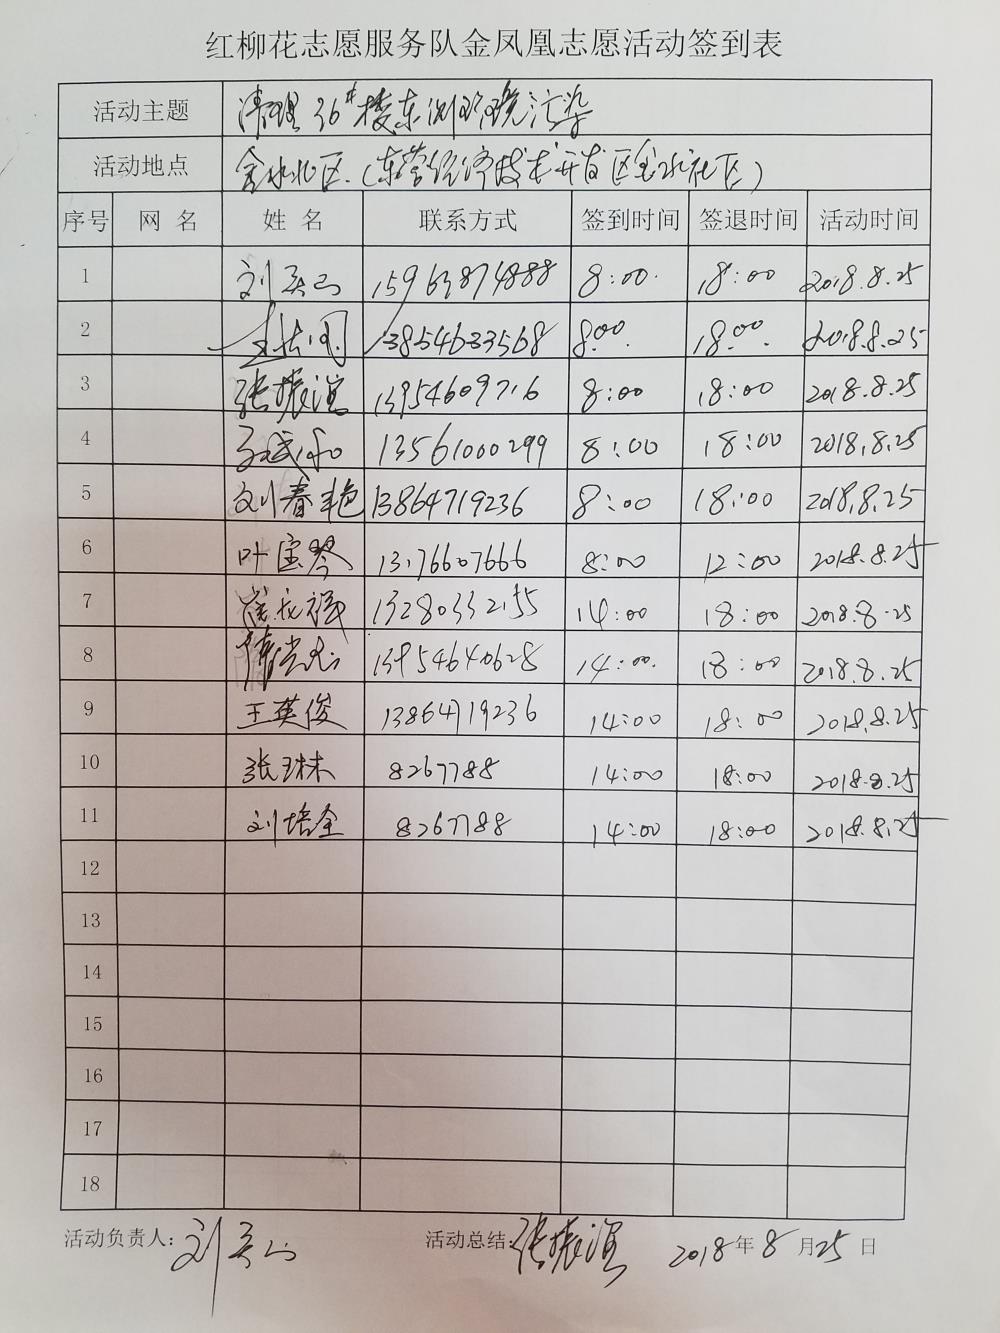 红柳花志愿服务队金凤凰志愿活动签到表
活动主题 清理36#楼东侧环境污染
活动地点 金水北区(东营经济技术开发区金水社区)
序号 网名 姓名 联系方式 签到时间 签退时间 活动时间
1 刘 15963874888 8:00 18:00 2018.8.25
2 13854633568 8:00 18:00 2018.8.25
3 张振谊 13954609716 8:00 18:00 2018.8.25
4 13561000299 8:00 18:00 2018.8.25
5 刘春艳 13864719236 8:00 18:00 2018.8.25
6 叶宝琴 13176607666 8:00 12:00 2018.8.25
7 13280332155 14:00 18:00 2018.8.25
8 13954640628 14:00 18:00 2018.8.25
9 王英俊 13864719236 14:00 18:00 2018.8.25
10 张琳 8267788 14:00 18:00 2018.8.25
11 刘培全 8267788 14:00 18:00 2018.8.25
12
13
14
15
16
17
18
活动负责人: 刘 活动总结: 张振谊 2018年8月25日